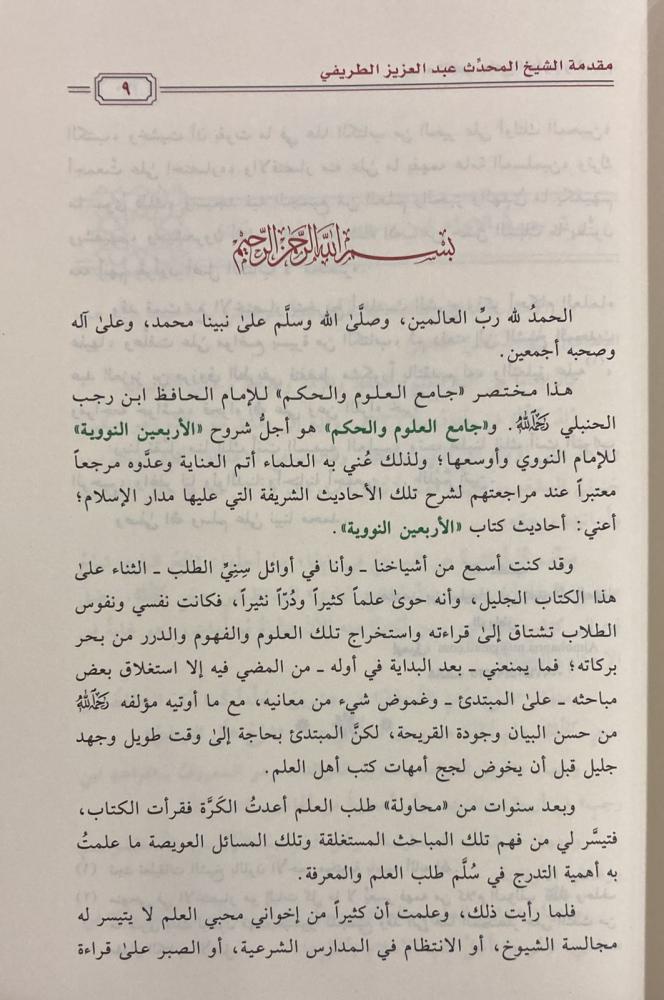 مقدمة الشيخ المحدِّث عبد العزيز الطريفي
٩
بسم الله الرحمن الرحيم
الحمدُ لله ربِّ العالمين، وصلَّىٰ الله وسلَّم علىٰ نبينا محمد، وعلىٰ آله
وصحبه أجمعين.
هذا مختصر «جامع العلوم والحكم» للإمام الحافظ ابن رجب
الحنبلي رَحِمَهُ اللهُ. و«جامع العلوم والحكم» هو أجلُّ شروح «الأربعين النووية»
للإمام النووي وأوسعها؛ ولذلك عُني به العلماء أتم العناية وعدَّوه مرجعاً
معتبراً عند مراجعتهم لشرح تلك الأحاديث الشريفة التي عليها مدار الإسلام؛
أعني: أحاديث كتاب «الأربعين النووية».
وقد كنت أسمع من أشياخنا ـ وأنا في أوائل سِنِيِّ الطلب ـ الثناء علىٰ
هذا الكتاب الجليل، وأنه حوىٰ علماً كثيراً ودُرّاً نثيراً، فكانت نفسي ونفوس
الطلاب تشتاق إلىٰ قراءته واستخراج تلك العلوم والفهوم والدرر من بحر
بركاته؛ فما يمنعني ـ بعد البداية في أوله ـ من المضي فيه إلا استغلاق بعض
مباحثه ـ علىٰ المبتدئ ـ وغموض شيء من معانيه، مع ما أوتيه مؤلفه رَحِمَهُ اللهُ
من حسن البيان وجودة القريحة، لكنَّ المبتدئ بحاجة إلىٰ وقت طويل وجهد
جليل قبل أن يخوض لجج أمهات كتب أهل العلم.
وبعد سنوات من «محاولة» طلب العلم أعدتُ الكَرَّة فقرأت الكتاب،
فتيسَّر لي من فهم تلك المباحث المستغلقة وتلك المسائل العويصة ما علمتُ
به أهمية التدرج في سُلَّم طلب العلم والمعرفة.
فلما رأيت ذلك، وعلمت أن كثيراً من إخواني محبي العلم لا يتيسر له
مجالسة الشيوخ، أو الانتظام في المدارس الشرعية، أو الصبر علىٰ قراءة